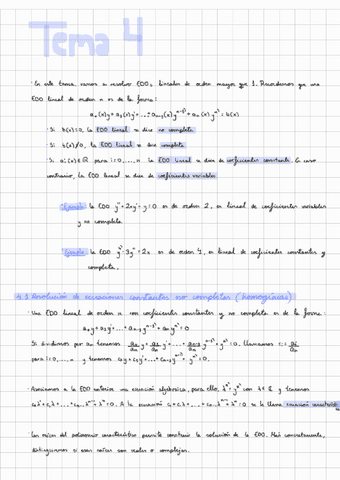 Tema 4
· En este tema, vamos a resolver EDOs lineales de orden mayor que 1. Recordemos que una
EDO lineal de orden n es de la forma:
a₀(x)y + a₁(x)y' + ... + aₙ₋₁(x)yⁿ⁻¹⁾ + aₙ(x)yⁿ⁾ = b(x)
· Si b(x)=0, la EDO lineal se dice no completa
· Si b(x)≠0, la EDO lineal se dice completa
· Si aᵢ(x)∈ℝ para i=0,...,n la EDO lineal se dice de coeficientes constantes. En caso
contrario, la EDO lineal se dice de coeficientes variables
Ejemplo la EDO y''+2xy'+y=0 es de orden 2, es lineal de coeficientes variables
y no completa.
Ejemplo la EDO -3y'' = 2x es de orden 4, es lineal de coeficientes constantes y
completa.
4.1 Resolución de ecuaciones constantes no completas (homogéneas)
· Una EDO lineal de orden n con coeficientes constantes y no completa es de la forma:
a₀y + a₁y' + ... + aₙ₋₁yⁿ⁻¹⁾ + aₙyⁿ⁾ = 0
Si dividimos por aₙ tenemos a₀/aₙ y + a₁/aₙ y' + ... + aₙ₋₁/aₙ yⁿ⁻¹⁾ + yⁿ⁾ = 0. Llamamos cᵢ = aᵢ/aₙ
para i=0,...,n y tenemos c₀y + c₁y' + ... + cₙ₋₁yⁿ⁻¹⁾ + yⁿ⁾ = 0.
· Asociamos a la EDO anterior una ecuación algebraica, para ello, con y tenemos
c₀ + c₁λ + ... + cₙ₋₁λⁿ⁻¹ + λⁿ = 0. A la ecuación c₀ + c₁λ + ... + cₙ₋₁λⁿ⁻¹ + λⁿ = 0 se le llama ecuación
· Las raíces del polinomio característico permite construir la solución de la EDO. Más concretamente,
distinguimos si esas raíces son reales o complejas.